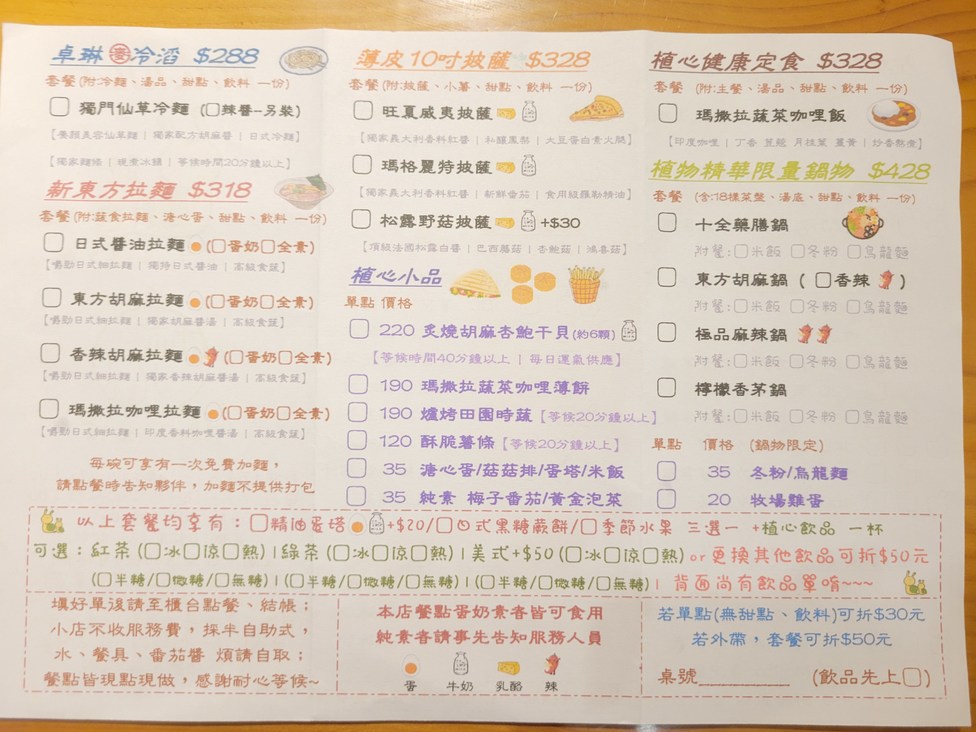 卓琳 冷滔 $288
套餐 (附:冷麵、湯品、甜點、飲料 一份)
獨門仙草冷麵 (辣醬-另裝)
【養顏美容仙草麵 | 獨家配方胡麻醬 | 日式冷麵】
【獨家麵條 | 現煮冰鎮 | 等候時間20分鐘以上】
新東方拉麵 $318
套餐 (附:蔬食拉麵、溏心蛋、甜點、飲料 一份)
日式醬油拉麵 (蛋奶全素)
【嚼勁日式細拉麵 | 獨特日式醬油 | 高級食蔬】
東方胡麻拉麵 (蛋奶全素)
【嚼勁日式細拉麵 | 獨家胡麻醬湯 | 高級食蔬】
香辣胡麻拉麵 (蛋奶全素)
【嚼勁日式細拉麵 | 獨家香辣胡麻醬湯 | 高級食蔬】
瑪撒拉咖哩拉麵 (蛋奶全素)
【嚼勁日式細拉麵 | 印度香料咖哩醬湯 | 高級食蔬】
每碗可享有一次免費加麵，
請點餐時告知夥伴，加麵不提供打包
薄皮10吋披薩 $328
套餐 (附:披薩、小薯、甜點、飲料 一份)
旺夏威夷披薩
【獨家義大利香料紅醬 | 私釀鳳梨 | 大豆蛋白素火腿】
瑪格麗特披薩
【獨家義大利香料紅醬 | 新鮮番茄 | 食用級羅勒精油】
松露野菇披薩 +$30
【頂級法國松露白醬 | 巴西蘑菇 | 杏鮑菇 | 鴻喜菇】
植心小品
單點 價格
220 炙燒胡麻杏鮑干貝(約6顆)
【等候時間40分鐘以上 | 每日運氣供應】
190 瑪撒拉蔬菜咖哩薄餅
190 爐烤田園時蔬【等候20分鐘以上】
120 酥脆薯條【等候20分鐘以上】
35 溏心蛋/菇菇排/蛋塔/米飯
35 純素 梅子番茄/黃金泡菜
植心健康定食 $328
套餐 (附:主餐、湯品、甜點、飲料 一份)
瑪撒拉蔬菜咖哩飯
【印度咖哩 | 丁香 荳蔻 月桂葉 薑黃 | 炒香熬煮】
植物精華限量鍋物 $428
套餐 (含:18樣菜盤、湯底、甜點、飲料 一份)
十全藥膳鍋
附餐:米飯 冬粉 烏龍麵
東方胡麻鍋 (香辣)
附餐:米飯 冬粉 烏龍麵
極品麻辣鍋
附餐:米飯 冬粉 烏龍麵
檸檬香茅鍋
附餐:米飯 冬粉 烏龍麵
單點 價格 (鍋物限定)
35 冬粉/烏龍麵
20 牧場雞蛋
以上套餐均享有：精油蛋塔+$20/日式黑糖蕨餅/季節水果 三選一 +植心飲品 一杯
可選：紅茶 (冰涼熱) | 綠茶 (冰涼熱) | 美式+$50 (冰涼熱) or 更換其他飲品可折$50元
(半糖/微糖/無糖) | (半糖/微糖/無糖) | (半糖/微糖/無糖) | 背面尚有飲品單唷~~~
填好單後請至櫃台點餐、結帳；
小店不收服務費，採半自助式，
水、餐具、番茄醬 煩請自取；
餐點皆現點現做，感謝耐心等候~
本店餐點蛋奶素者皆可食用
純素者請事先告知服務人員
蛋 牛奶 乳酪 辣
若單點(無甜點、飲料)可折$30元
若外帶，套餐可折$50元
桌號__________ (飲品先上)